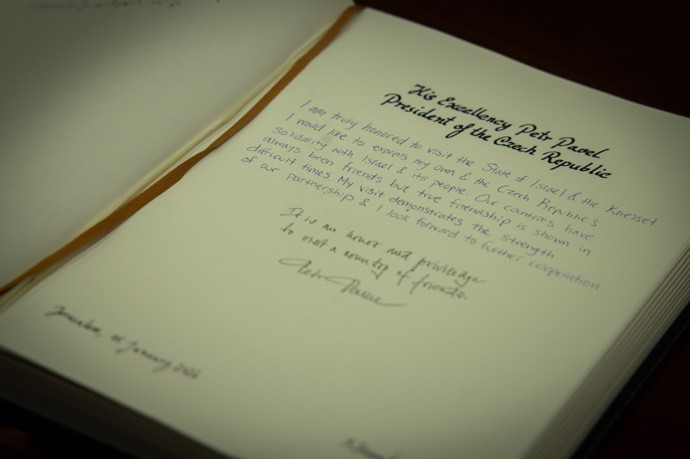 His Excellency Petr Pavel
President of the Czech Republic
I am truly honored to visit the State of Israel & the Knesset
I would like to express my own & the Czech Republic's
solidarity with Israel & its people. Our countries have
always been friends but true friendship is shown in
difficult times. My visit demonstrates the strength
of our partnership & I look forward to further cooperation.
It is an honor and privilege
to visit a country of friends.
Petr Pavel
Jerusalem, January